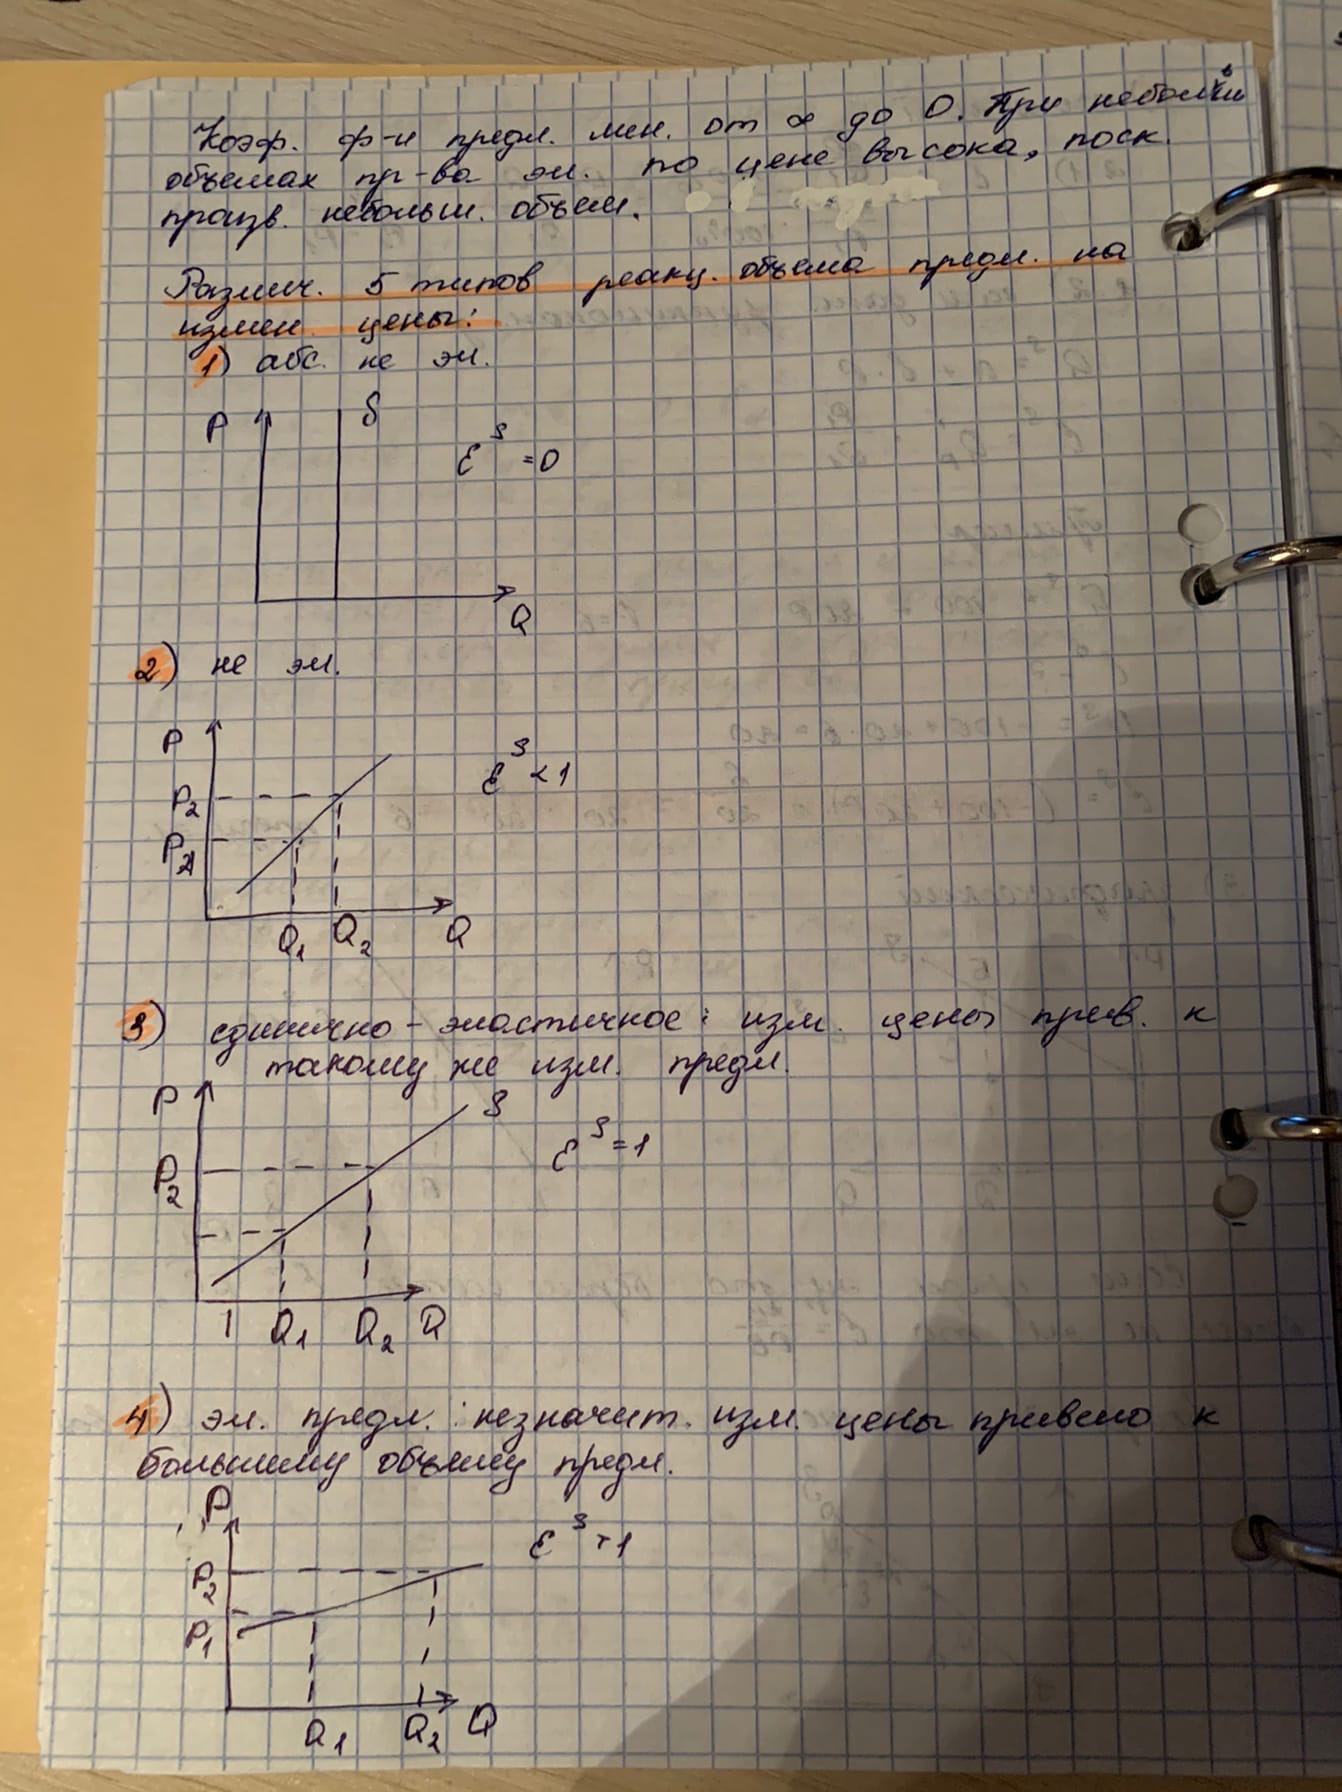 Коэф. ф-и предл. мен. от ∞ до 0. При небольш
объемах пр-ва эл. по цене высока, поск.
произв. небольш. объем.
Различ. 5 типов реакц. объема предл. на
измен. цены:
1) абс. не эл.
P
S
E^S =0
Q
2) не эл.
P
E^S <1
P2
P1
Q1 Q2 Q
3) единично-эластичное: изм. цены прив. к
такому же изм. предл.
P
S
E^S =1
P2
1 Q1 Q2 Q
4) эл. предл.: незначит. изм. цены привело к
большему объему предл.
P
E^S >1
P2
P1
Q1 Q2 Q